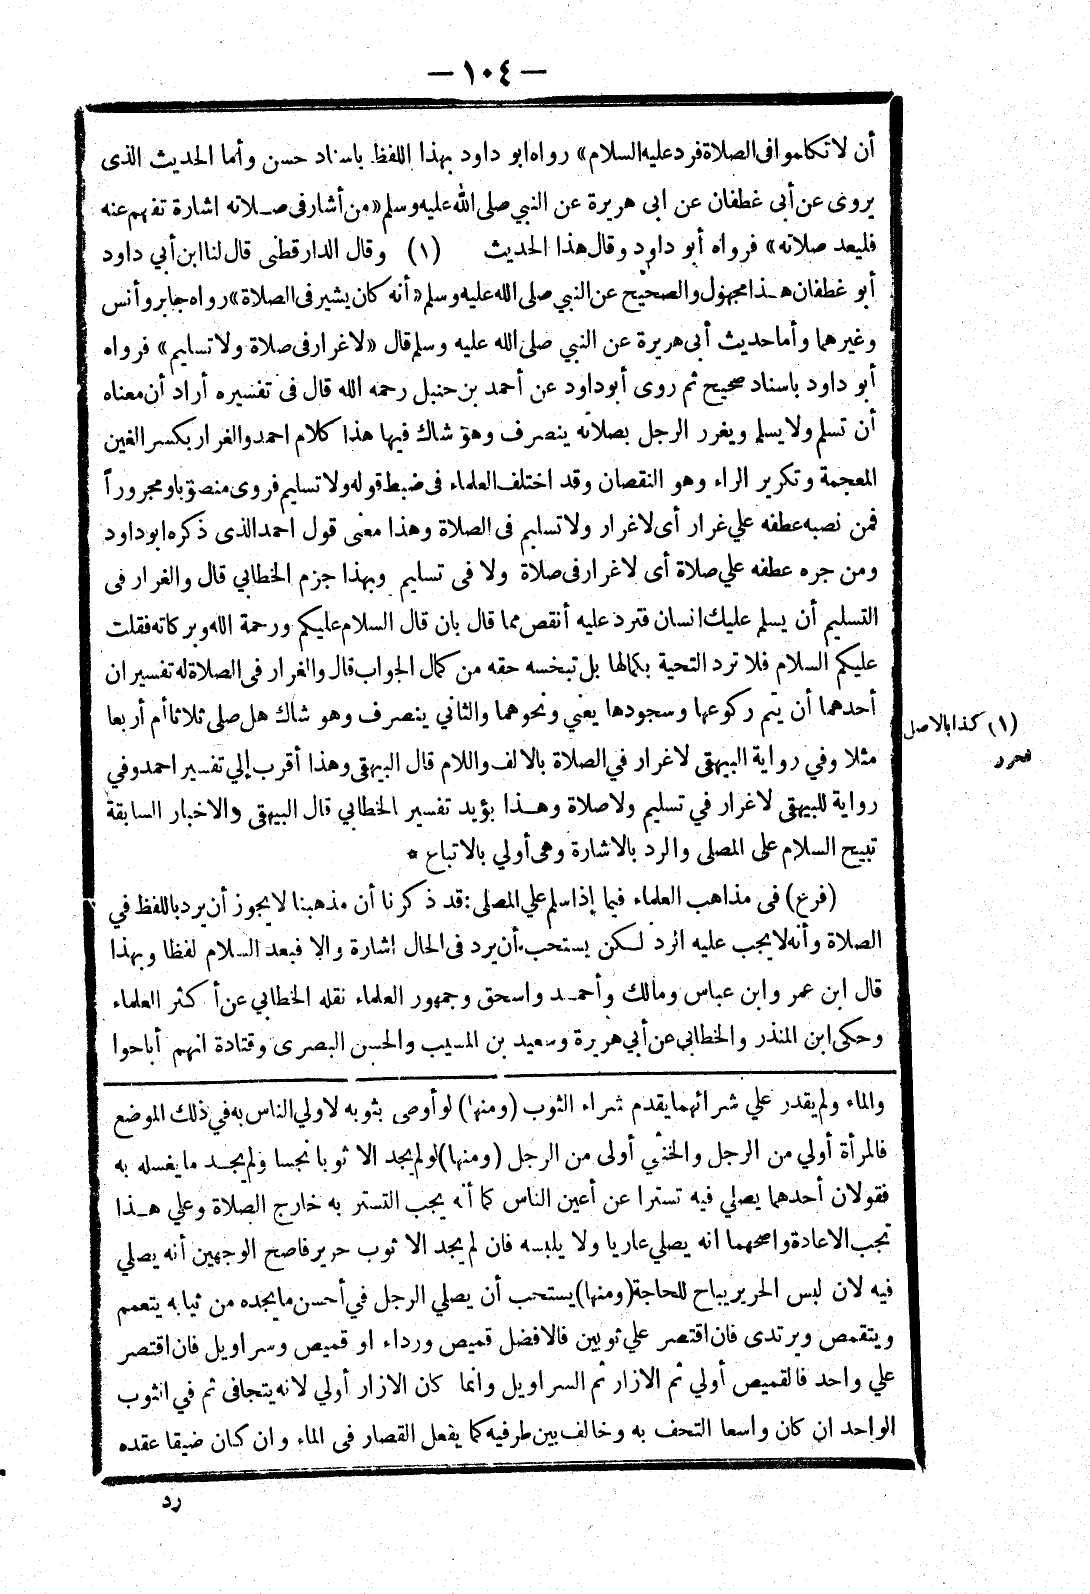 — ١٠٤ —
أن لا تكاموا فى الصلاة فرد عليه السلام» رواه ابو داود بهذا اللفظ باسناد حسن وأما الحديث الذى
يروى عن أبى غطفان عن ابى هريرة عن النبي صلى الله عليه وسلم «من أشار فى صـلاته اشارة تفهم عنه
فليعد صلاته» فرواه أبو داود وقال هذا الحديث (١) وقال الدارقطنى قال لنا ابن أبي داود
أبو غطفان هـذا مجهول والصحيح عن النبي صلى الله عليه وسلم «أنه كان يشير فى الصلاة» رواه جابر وأنس
وغيرهما وأما حديث أبى هريرة عن النبي صلى الله عليه وسلم قال «لا غرار فى صلاة ولا تسليم» فرواه
أبو داود باسناد صحيح ثم روى أبو داود عن أحمد بن حنبل رحمه الله قال فى تفسيره أراد أن معناه
أن تسلم ولا يسلم ويغرر الرجل بصلاته ينصرف وهو شاك فيها هذا كلام احمد والغرار بكسر الغين
المعجمة وتكرير الراء وهو النقصان وقد اختلف العلماء فى ضبط قوله ولا تسليم فروى منصوبا ومجروراً
فمن نصبه عطفه علي غرار أى لا غرار ولا تسليم فى الصلاة وهذا معنى قول احمد الذى ذكره ابو داود
ومن جره عطفه علي صلاة أى لا غرار فى صلاة ولا فى تسليم وبهذا جزم الخطابي قال والغرار فى
التسليم أن يسلم عليك انسان فترد عليه أنقص مما قال بان قال السلام عليكم ورحمة الله وبركاته فقلت
عليكم السلام فلا ترد التحية بكمالها بل تبخسه حقه من كمال الجواب قال والغرار فى الصلاة له تفسيران
أحدهما أن يتم ركوعها وسجودها يعني ونحوهما والثاني ينصرف وهو شاك هل صلى ثلاثا أم أربعا
(١) كذا بالاصل
فحرر
مثلا وفي رواية البيهقى لا غرار في الصلاة بالالف واللام قال البيهقى وهذا أقرب إلي تفسير احمد وفي
رواية للبيهقى لا غرار في تسليم ولا صلاة وهـذا يؤيد تفسير الخطابي قال البيهقى والاخبار السابقة
تبيح السلام على المصلى والرد بالاشارة وهى أولي بالاتباع *
(فرع) فى مذاهب العلماء فيما إذا سلم علي المصلى : قد ذكرنا أن مذهبنا لا يجوز أن يرد باللفظ في
الصلاة وأنه لا يجب عليه الرد لـكن يستحب أن يرد فى الحال اشارة والا فبعد السلام لفظا وبهذا
قال ابن عمر وابن عباس ومالك وأحمـد واسحق وجمهور العلماء نقله الخطابي عن أكثر العلماء
وحكى ابن المنذر والخطابي عن أبي هريرة وسعيد بن المسيب والحسن البصرى وقتادة انهم أباحوا
والماء ولم يقدر علي شرائهما يقدم شراء الثوب (ومنها) لو أوصى بثوبه لاولي الناس به في ذلك الموضع
فالمرأة أولي من الرجل والخنثي أولى من الرجل (ومنها) لو لم يجد الا ثوبا نجسا ولم يجـد ما يغسله به
فقولان أحدهما يصلي فيه تسترا عن أعين الناس كما أنه يجب التستر به خارج الصلاة وعلي هـذا
تجب الاعادة واصحهما انه يصلي عاريا ولا يلبسه فان لم يجد الا ثوب حرير فاصح الوجهين أنه يصلي
فيه لان لبس الحرير يباح للحاجة (ومنها) يستحب أن يصلي الرجل في أحسن ما يجده من ثيابه يتعمم
ويتقمص ويرتدى فان اقتصر علي ثوبين فالافضل قميص ورداء او قميص وسراويل فان اقتصر
علي واحد فالقميص أولي ثم الازار ثم السراويل وانما كان الازار أولي لانه يتجافى ثم في الثوب
الواحد ان كان واسعا التحف به وخالف بين طرفيه كما يفعل القصار فى الماء وان كان ضيقا عقده
رد